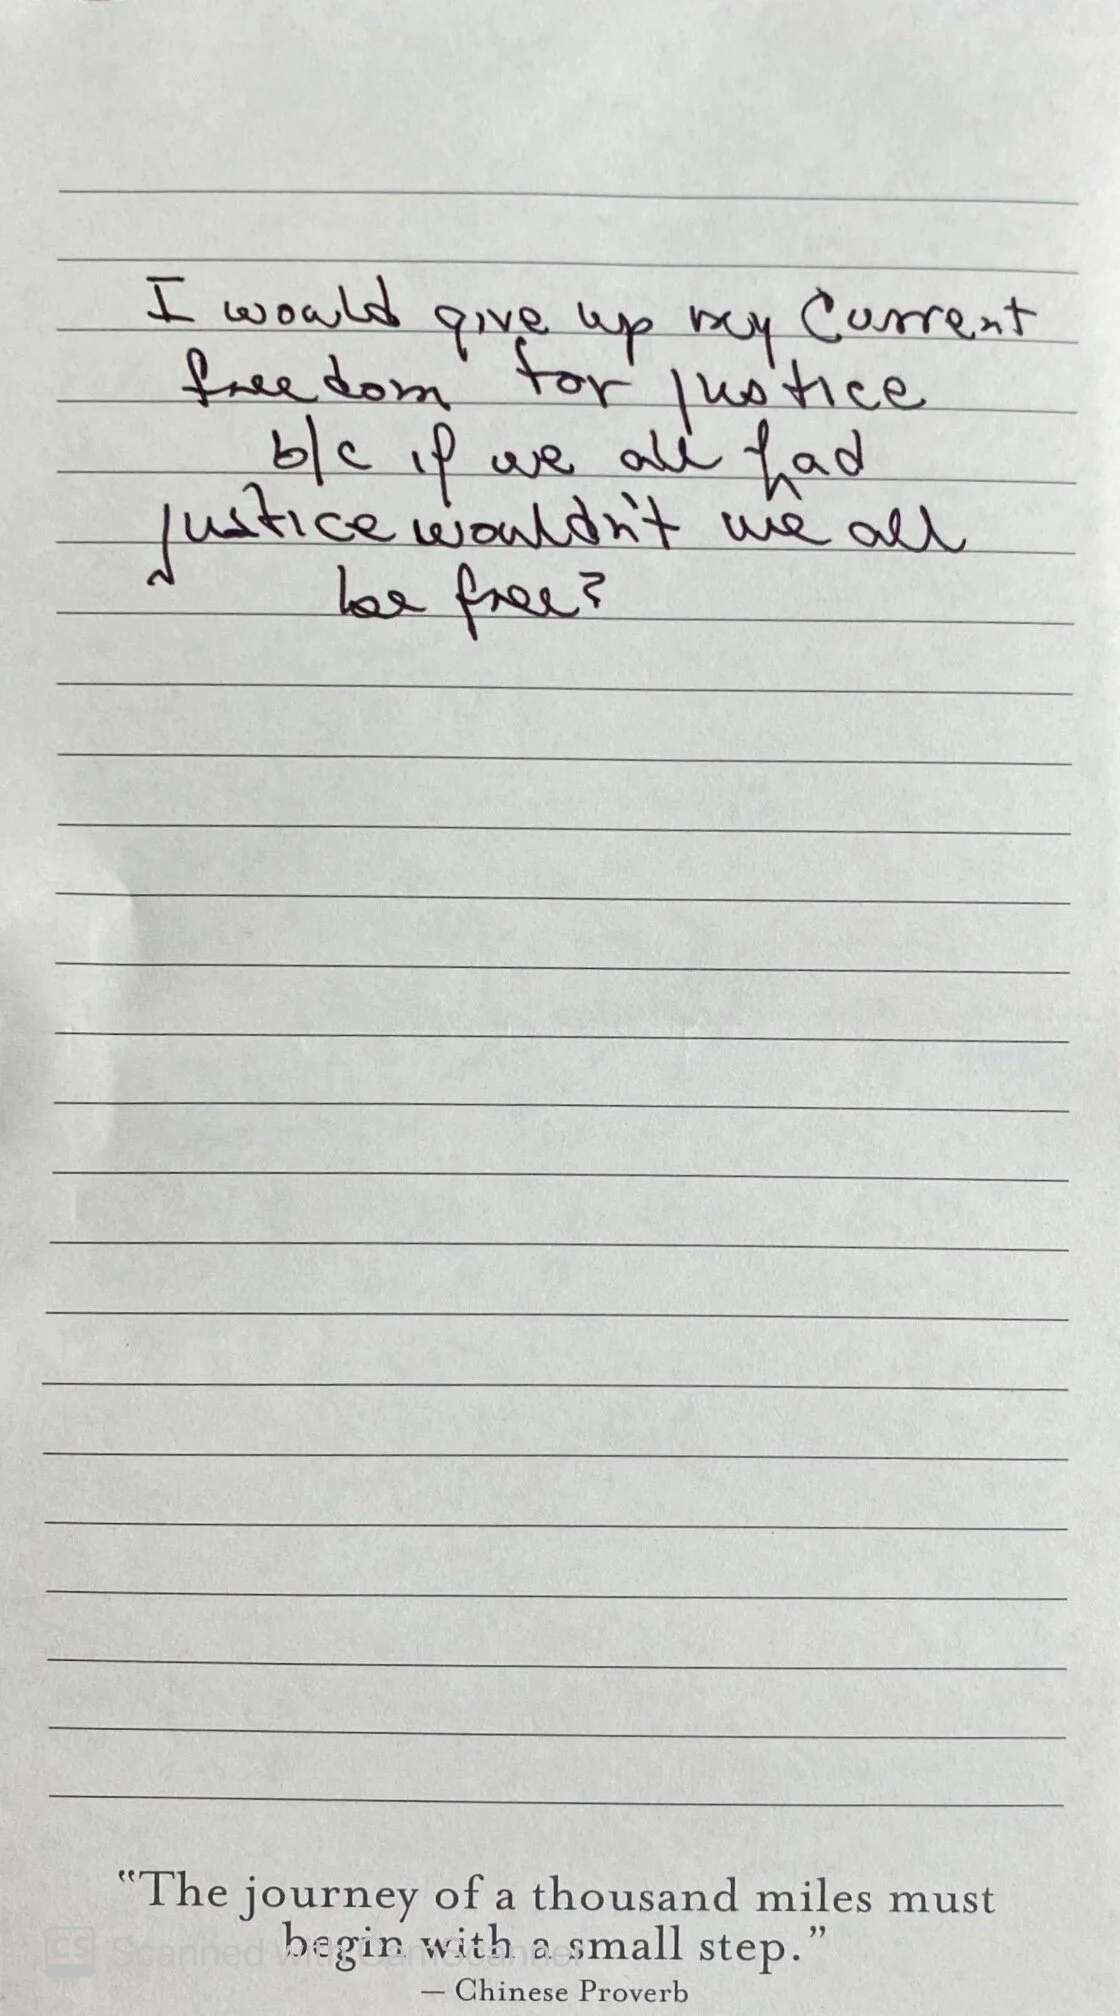 I would give up my Current
freedom for justice
b/c if we all had
justice wouldn't we all
be free?
"The journey of a thousand miles must
begin with a small step."
— Chinese Proverb
CS Scanned with CamScanner